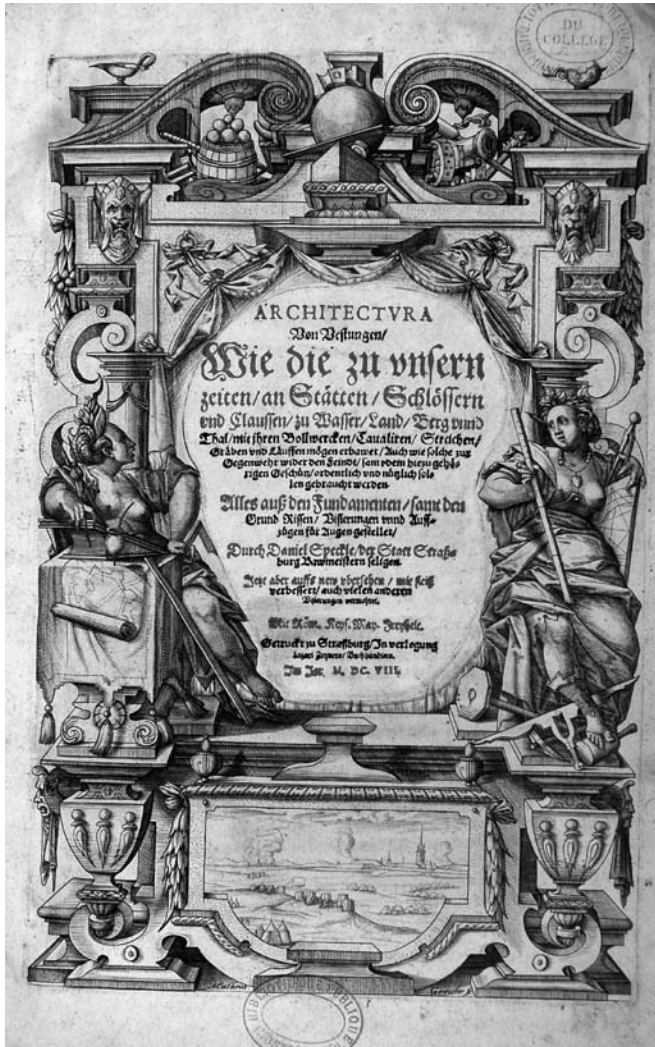 DU
COLLEGE
ARCHITECTVRA
Von Vestungen/
Wie die zu vnsern
zeiten/an Stätten/Schlössern
vnd Claussen/zu Wasser/Land/Berg vnnd
Thal/mit jhren Bollwercken/Caualiren/Streichen/
Gräben vnd Läuffen mögen erbawet/Auch wie solche zur
Gegenwehr wider den Feindt/sampt dem hiezu gehö-
rigen Geschütz/ordentlich vnd nützlich sol-
len gebraucht werden.
Alles auß den Fundamenten/sampt den
Grund Rissen/Visierungen vnnd Auff-
zügen für Augen gestellet/
Durch Daniel Speckle/der Statt Straß-
burg Bawmeistern seligen.
Jetzt aber auffs new vbersehen/mit fleiß
verbessert/auch vielen anderen
Visierungen vermehret.
Mit Röm. Keys. May. Freyheit.
Getruckt zu Straßburg/In verlegung
Lazari Zetzners/Buchhändlers.
Im Jar M. DC. VIII.
BIBLIOTHEQUE PUBLIQUE